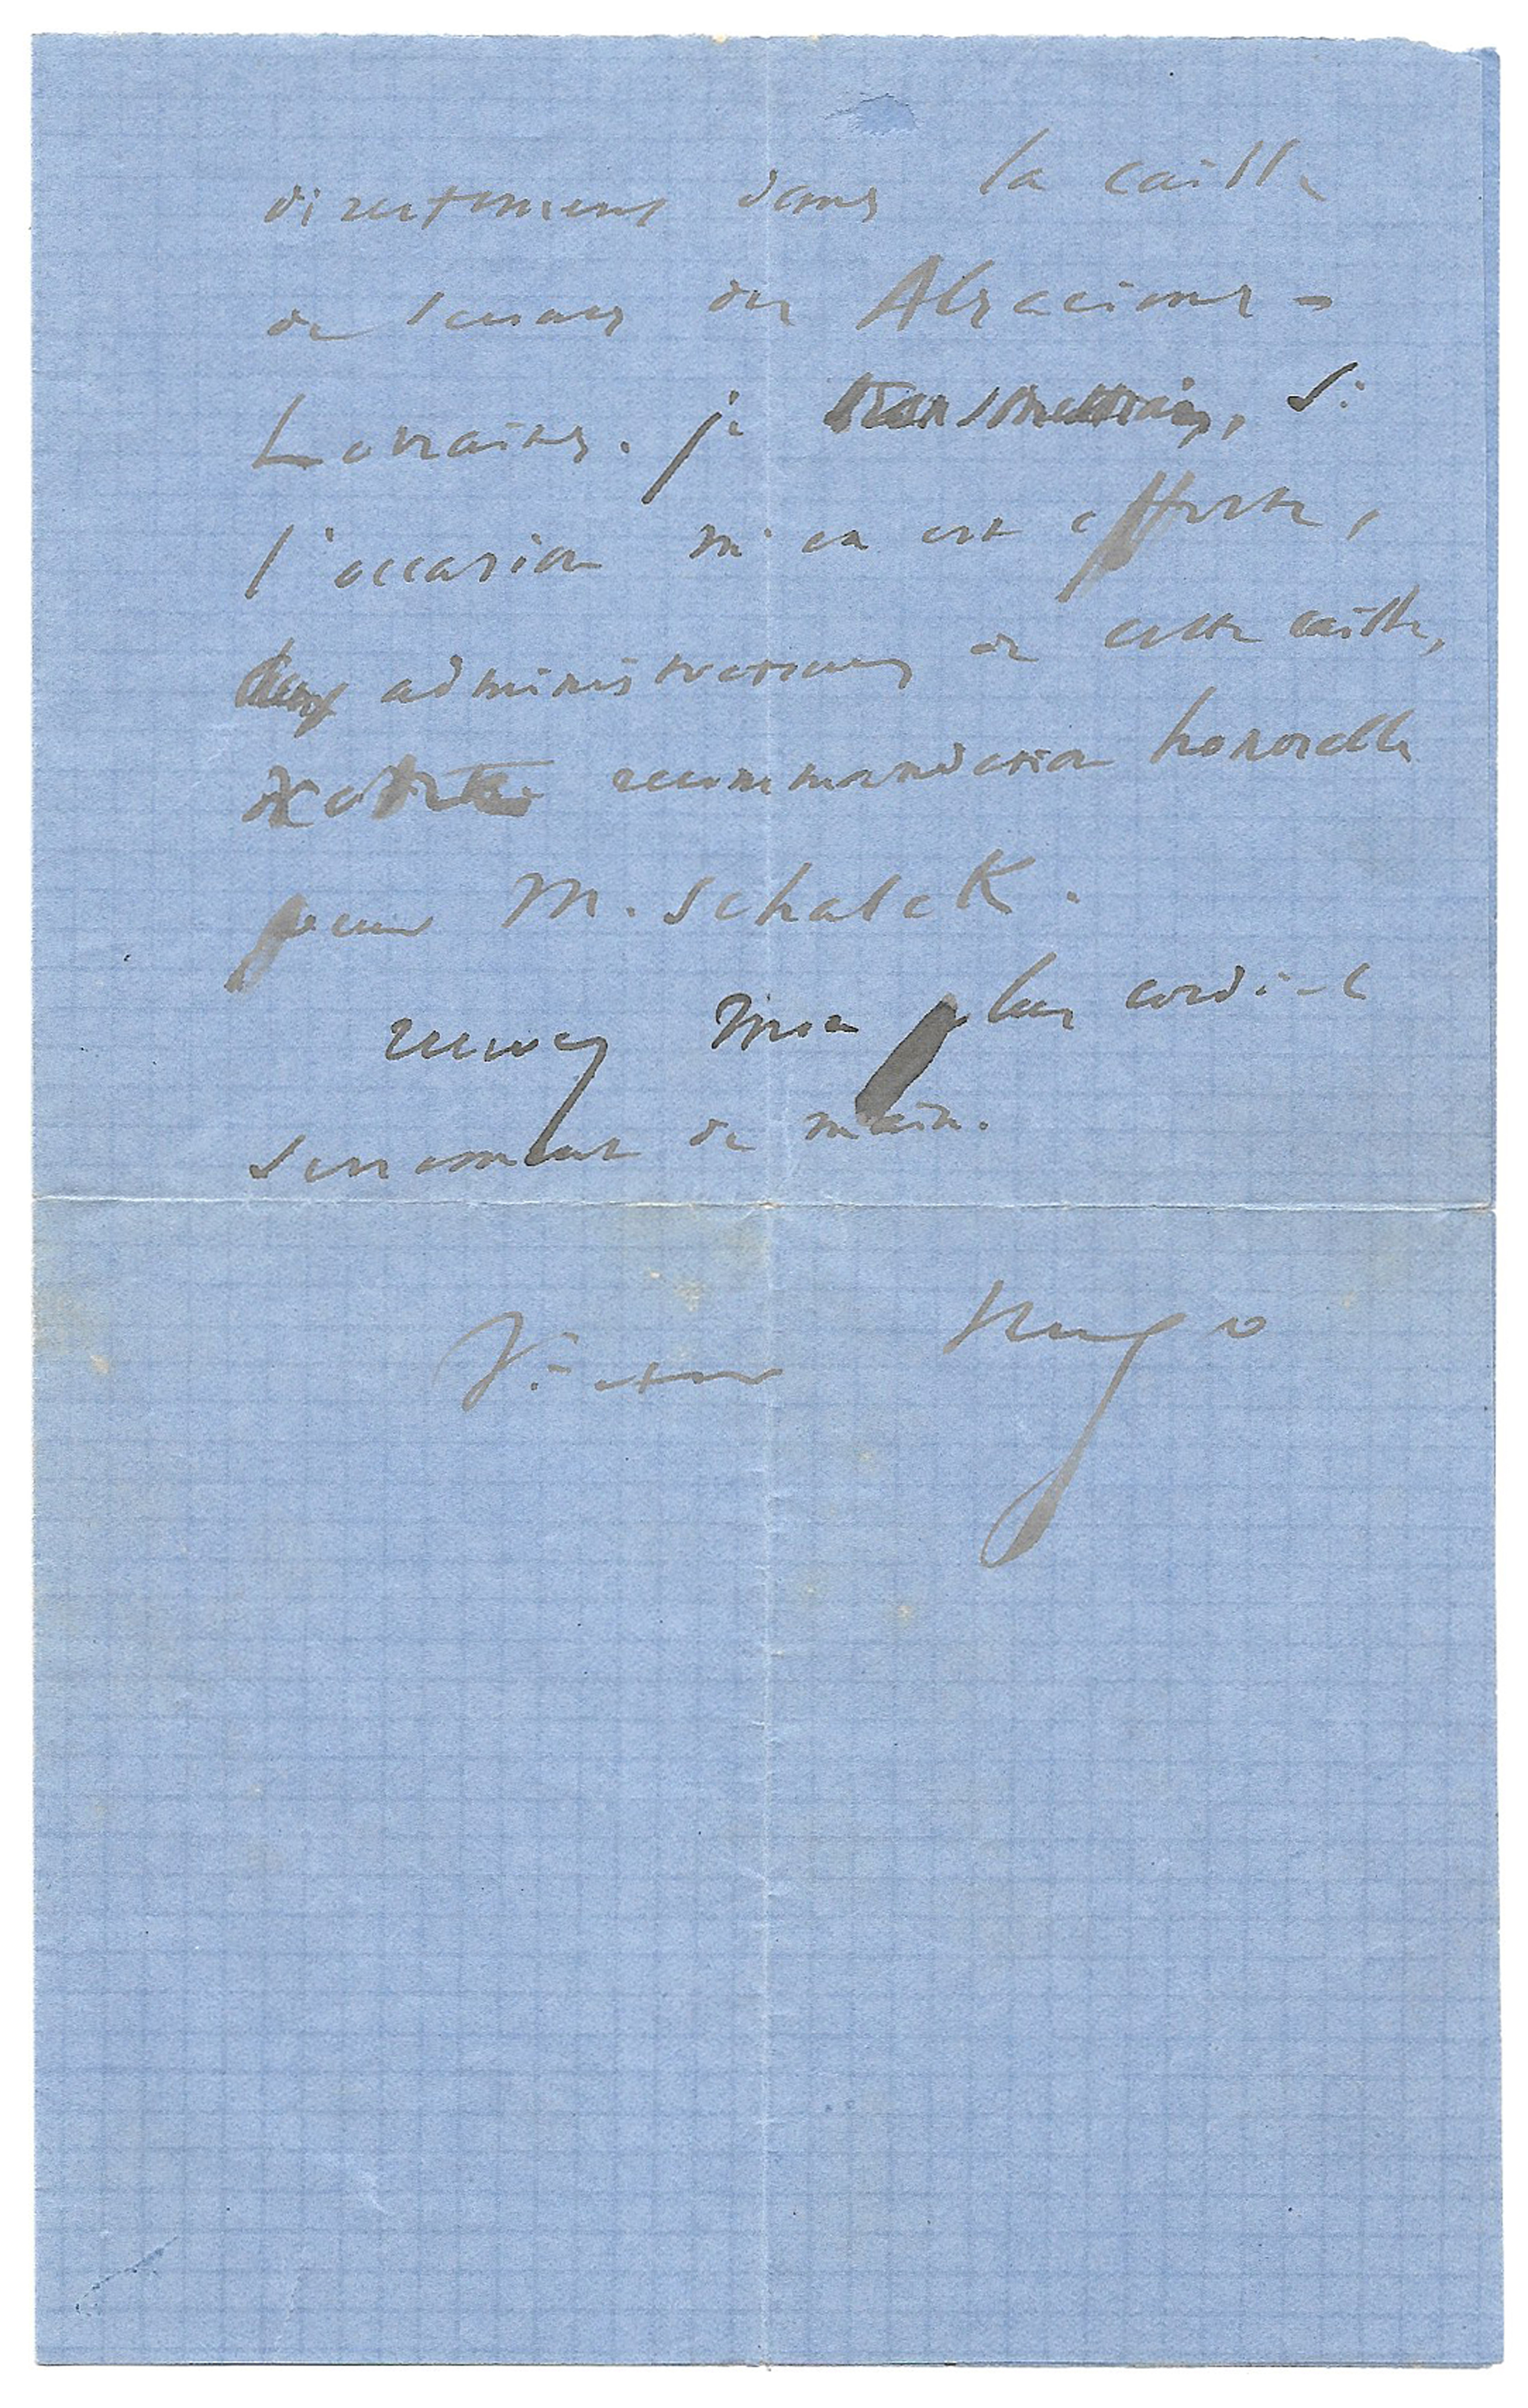 directement dans la caisse
de secours des Alsaciens-
Lorrains. je transmettrai, si
l'occasion m'en est offerte,
aux administrateurs de cette caisse,
votre recommandation honorable
pour M. Schalck.
recevez mon plus cordial
serrement de main.
Victor Hugo